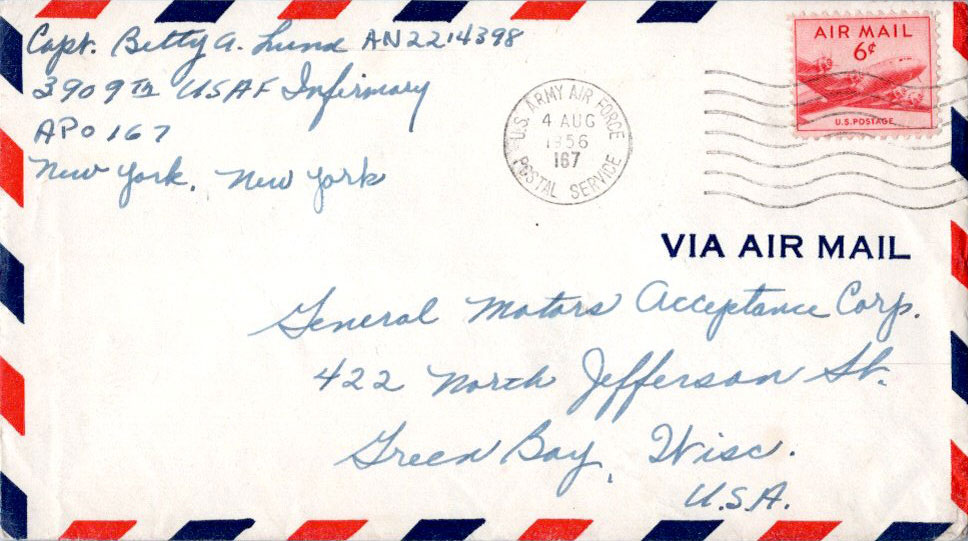 Capt. Betty A. Lund AN2214398
3909th USAF Infirmary
APO 167
New York, New York
U.S. ARMY AIR FORCE
4 AUG
1956
167
POSTAL SERVICE
AIR MAIL
6¢
U.S. POSTAGE
VIA AIR MAIL
General Motors Acceptance Corp.
422 North Jefferson St.
Green Bay, Wisc.
U.S.A.